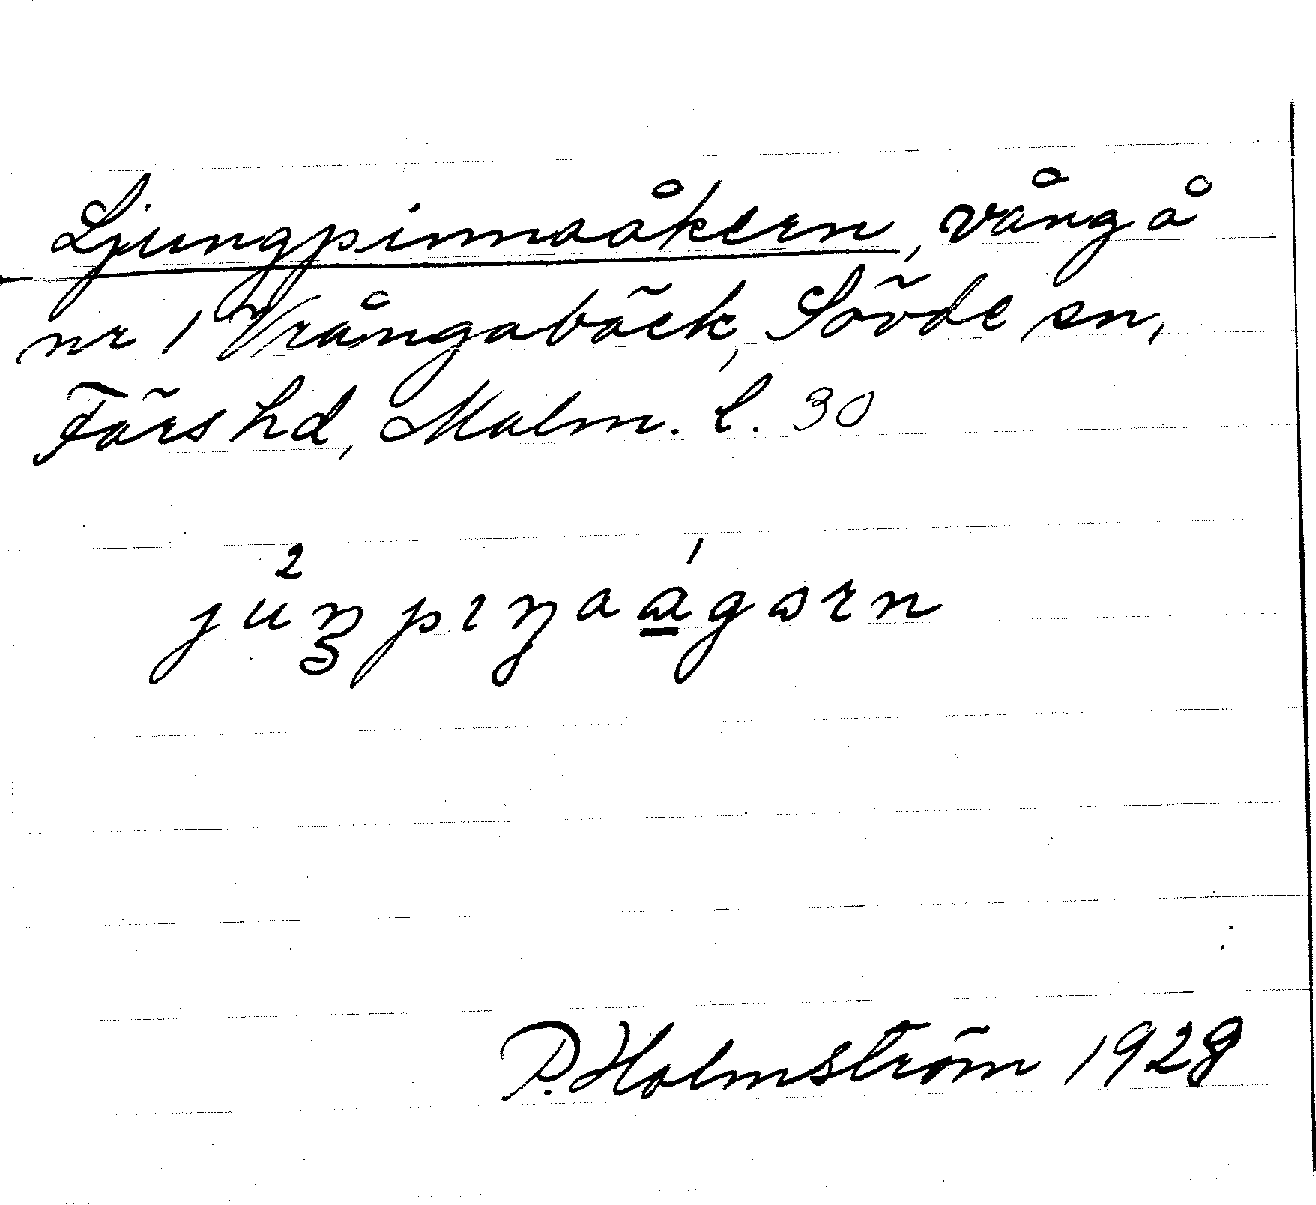 Ljungpinnaåkern, vång å
nr 1 Vrångabäck, Sövde sn,
Färs hd, Malm. l. 30
P. Holmström 1928